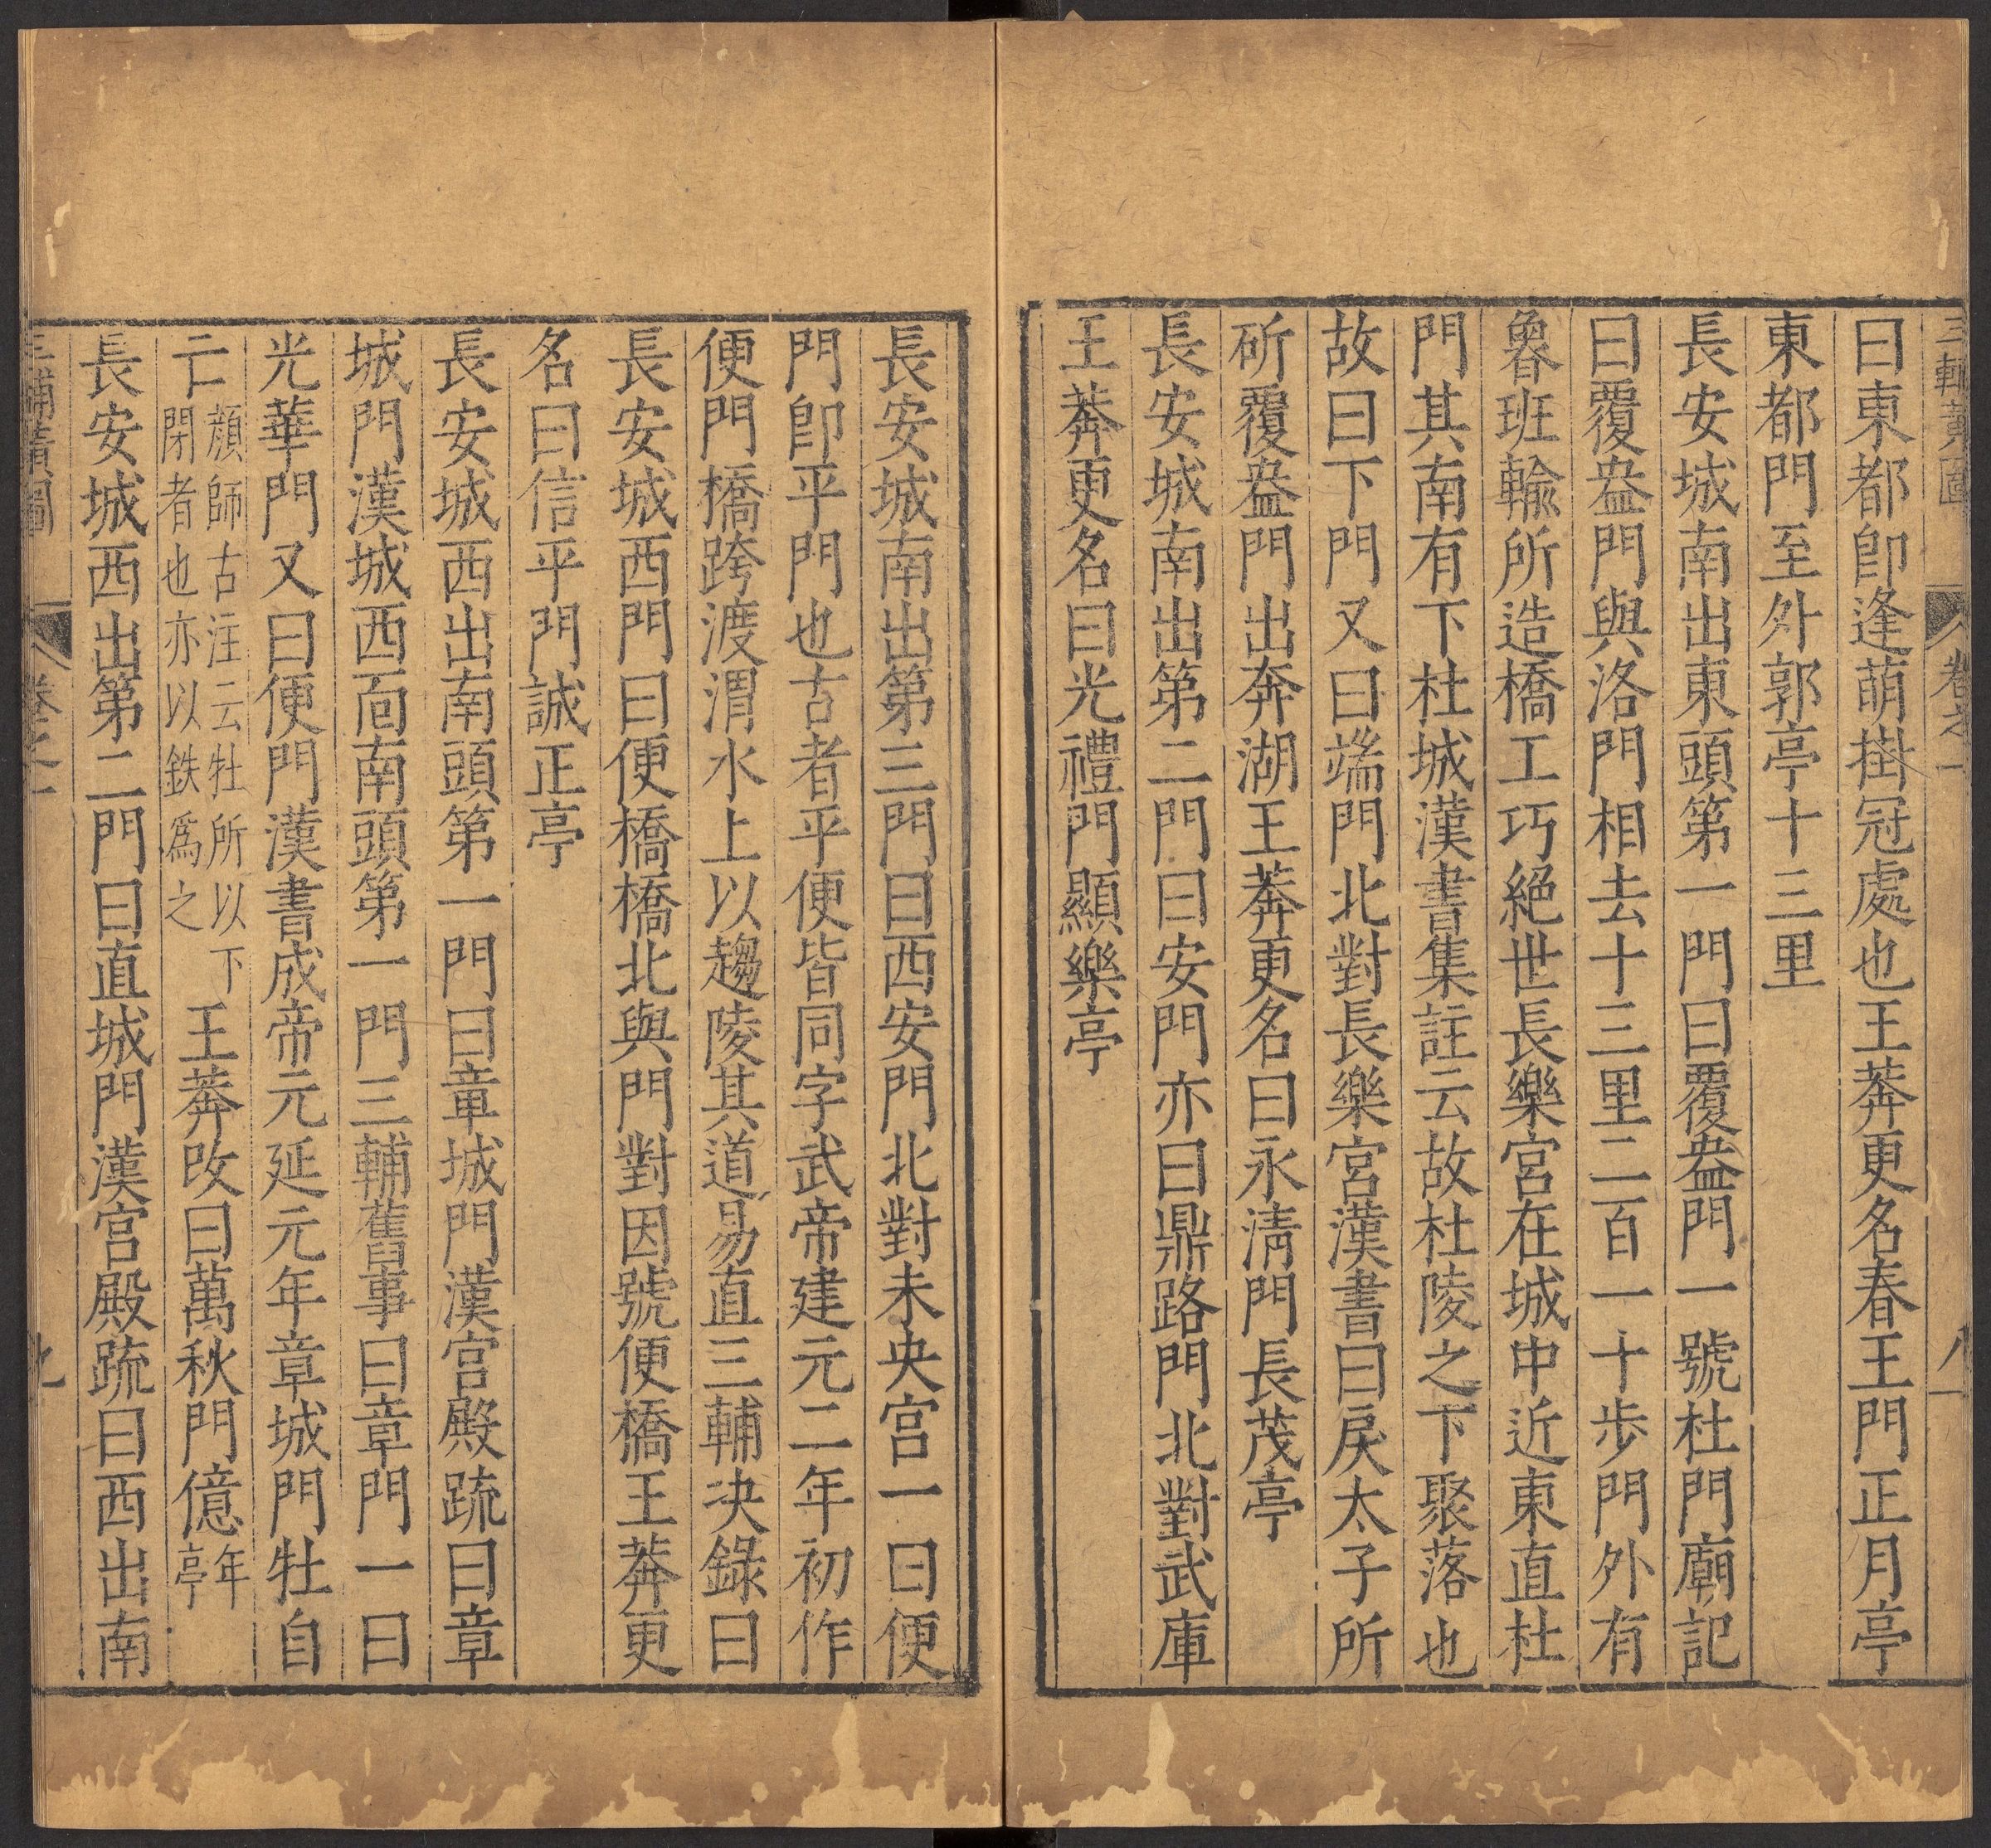 三輔黃圖 卷之一 八
曰東都卽逢萌掛冠處也王莽更名春王門正月亭
東都門至外郭亭十三里
長安城南出東頭第一門曰覆盎門一號杜門廟記
曰覆盎門與洛門相去十三里二百一十步門外有
魯班輸所造橋工巧絕世長樂宮在城中近東直杜
門其南有下杜城漢書集註云故杜陵之下聚落也
故曰下門又曰端門北對長樂宮漢書曰戾太子所
斫覆盎門出奔湖王莽更名曰永淸門長茂亭
長安城南出第二門曰安門亦曰鼎路門北對武庫
王莽更名曰光禮門顯樂亭
長安城南出第三門曰西安門北對未央宮一曰便
門卽平門也古者平便皆同字武帝建元二年初作
便門橋跨渡渭水上以趨陵其道易直三輔决錄曰
長安城西門曰便橋橋北與門對因號便橋王莽更
名曰信平門誠正亭
長安城西出南頭第一門曰章城門漢宮殿疏曰章
城門漢城西面南頭第一門三輔舊事曰章門一曰
光華門又曰便門漢書成帝元延元年章城門牡自
亡顔師古注云牡所以下閉者也亦以鉄爲之王莽改曰萬秋門億年亭
長安城西出第二門曰直城門漢宮殿疏曰西出南
三輔黃圖 卷之一 九